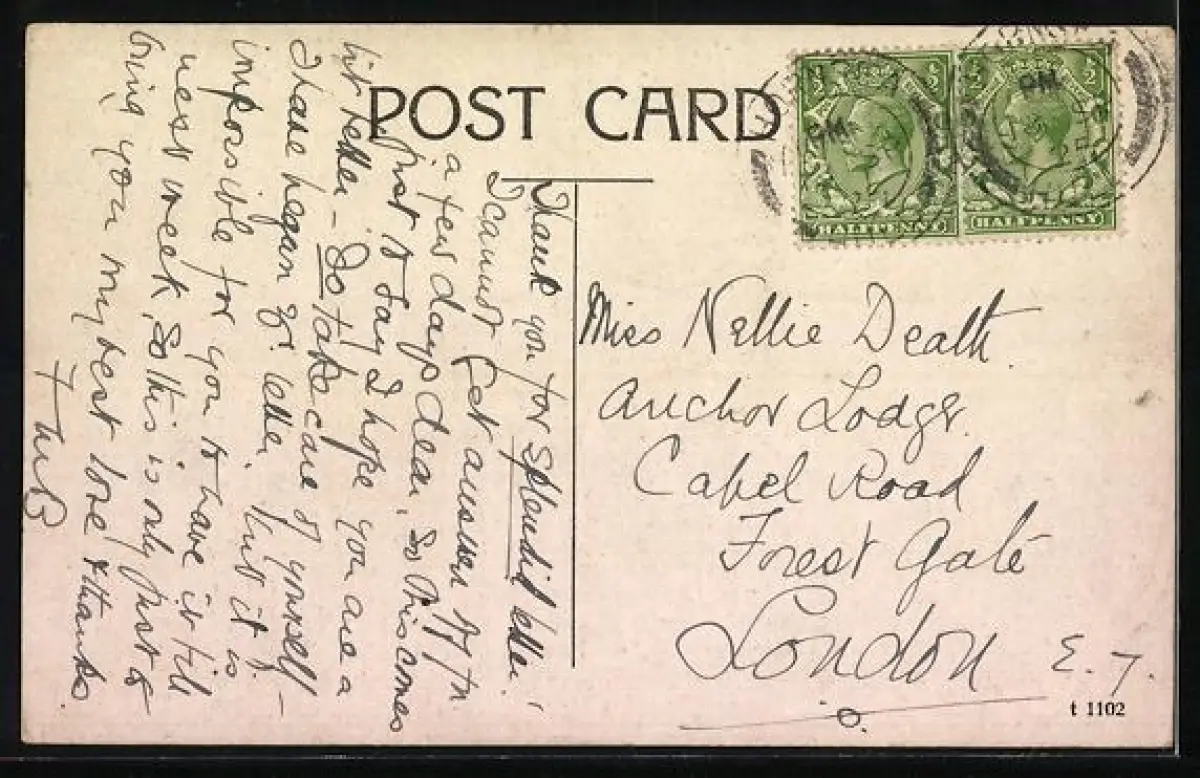 POST CARD
Thank you for splendid letter.
I cannot get answer off for
a few days dear, so this comes
first to say I hope you are a
bit better - Do take care of yourself -
I have began yr. letter, but it is
impossible for you to have it till
next week, so this is only just to
bring you my best love & thanks.
HALFPENNY
HALFPENNY
PM
PM
Miss Nellie Death.
Anchor Lodge.
Capel Road
Forest Gate
London E. 7.
t 1102